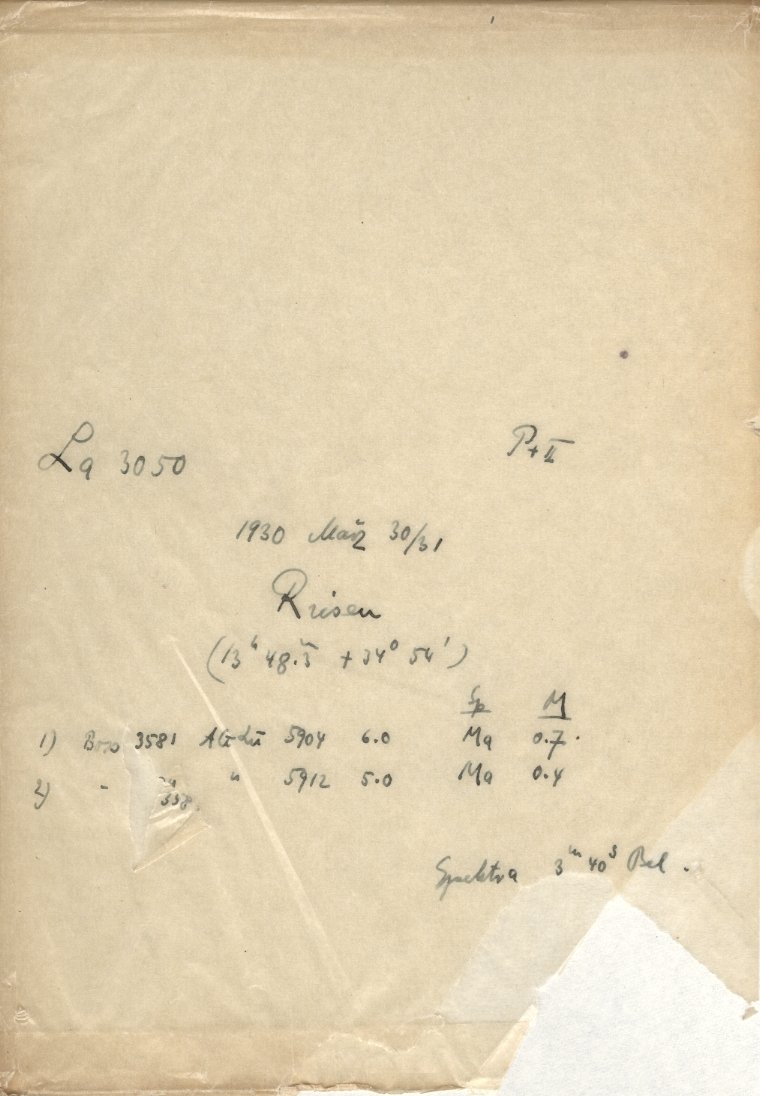 La 3050 P+II
1930 März 30/31
Riesen
(13h 48.m5 +34° 54')
Sp M
1) Boss 3581 AG Lu 5904 6.0 Ma 0.7
2) " " 5912 5.0 Ma 0.4
Spektra 3m 40s Bel.